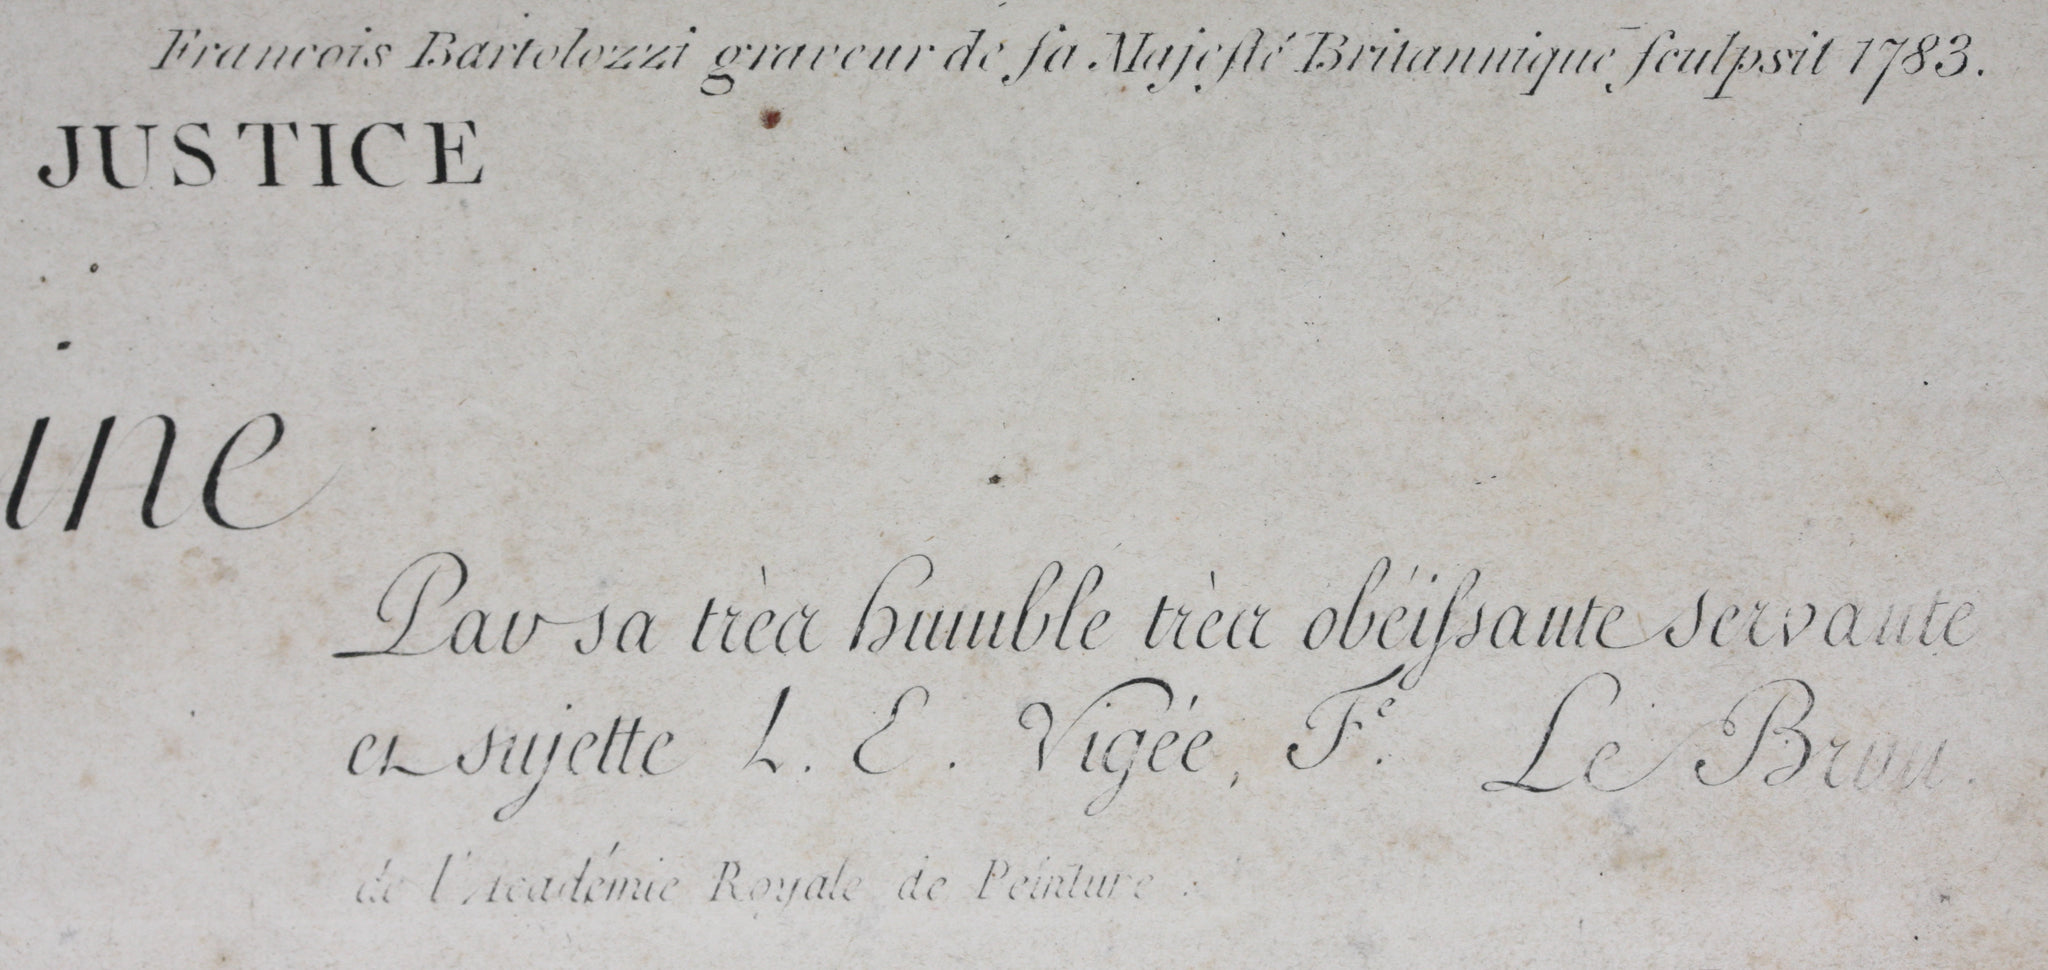 Francois Bartolozzi graveur de sa Majesté Britannique sculpsit 1783.
JUSTICE
ine
Par sa très humble très obéissante servante
et sujette L. E. Vigée, Fe. Le Brun.
de l'Académie Royale de Peinture.